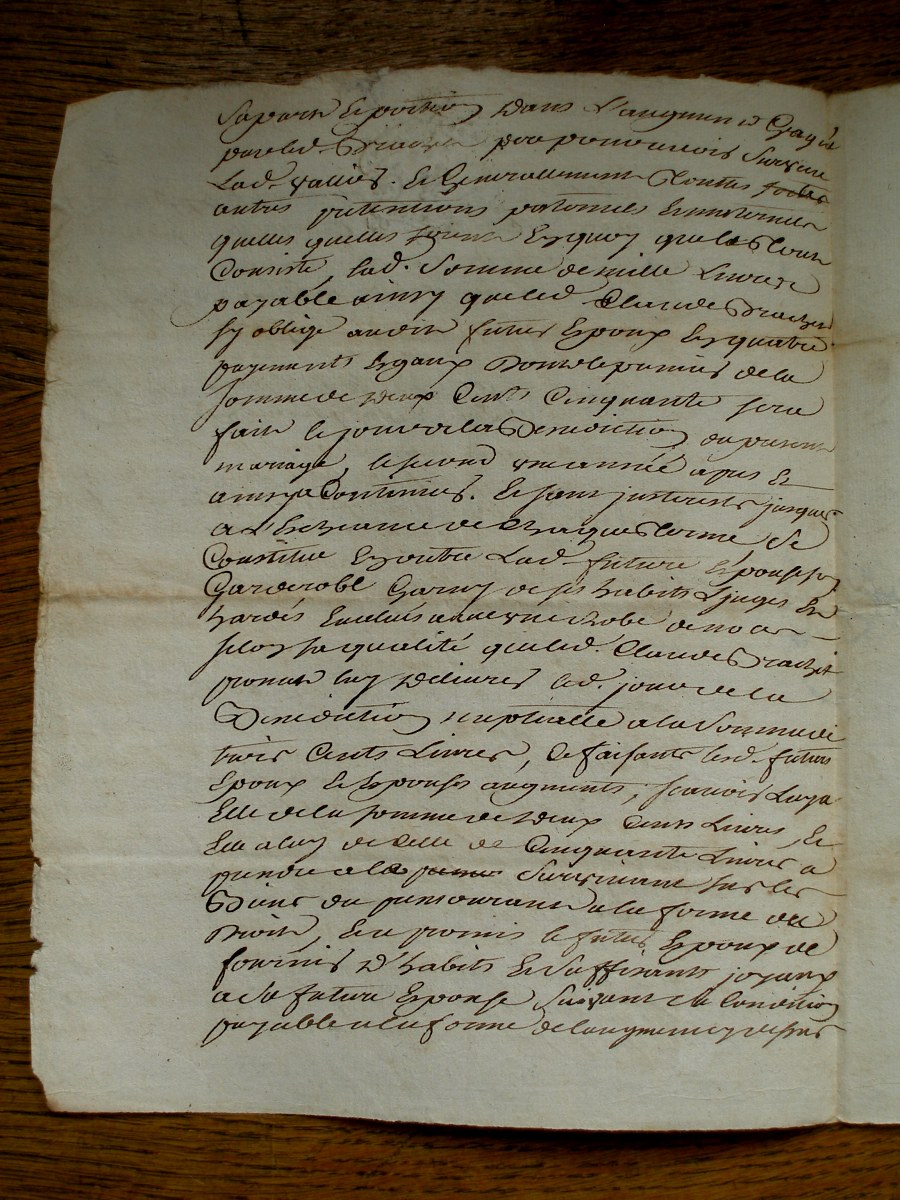 Sa part et portion dans l'augment Gagné
par led. Brachet pour
Lad. vallier. et Generallement touttes toutes
autres pretentions paternels et maternels
quelles quelles soient En quoy que le tout
Consiste, lad. Somme de mille Livres
payable ainsy que led. Claude Brachet
sy oblige audit futur Epoux En quatre
payements Egaux dont le premier de la
somme de deux Cents Cinquante sera
fait le jour de la Benediction du present
mariage, le second une année apres Et
ainsy a Continuer. Et sans interests jusques
a l'Echeance de Chaque terme Se
Constitue En outre Lad. future Epouse son
Garderobe Garny de ses habits Linges Et
hardes Enclus une robe de noces
selon sa qualité que led. Claude Brachet
promet luy delivrer led. jour de la
Benediction nuptialle a la Somme de
trois Cents Livres, Se faisants lesd. futurs
Epoux et Epouse augments, scavoir Luy a
Elle de la somme de deux Cents Livres, Et
Elle a luy de Celle de Cinquante Livres a
prendre a le Survivant sur les
Biens du premourant a la forme du
Droit, Et a promis le futur Epoux de
fournir d'habits Et Suffisants joyaux
a Sa future Epouse Suivant sa Condition
payable a la forme de l'augment cy dessus